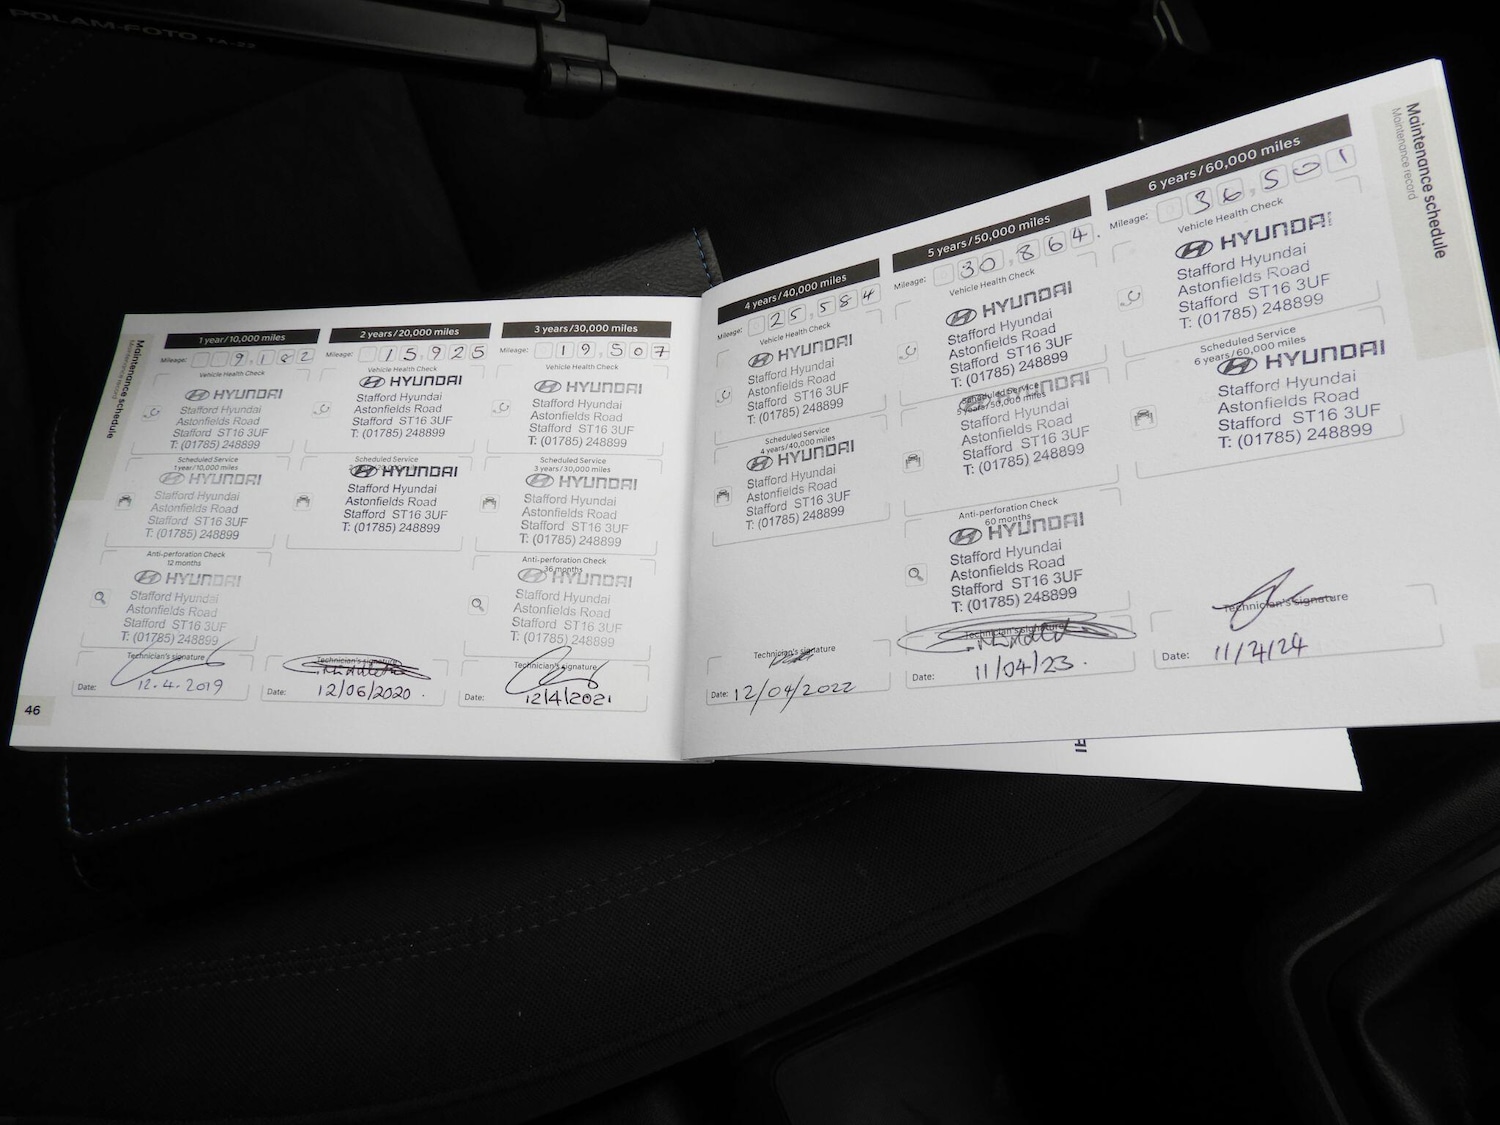 POLAM-FOTO TA-22
Maintenance schedule
Maintenance record
1 year/10,000 miles
Mileage: 9,182
Vehicle Health Check
HYUNDAI
Stafford Hyundai
Astonfields Road
Stafford ST16 3UF
T: (01785) 248899
Scheduled Service
1 year/10,000 miles
HYUNDAI
Stafford Hyundai
Astonfields Road
Stafford ST16 3UF
T: (01785) 248899
Anti-perforation Check
12 months
HYUNDAI
Stafford Hyundai
Astonfields Road
Stafford ST16 3UF
T: (01785) 248899
Technician's signature
Date: 12.4.2019
46
2 years/20,000 miles
Mileage: 15,925
Vehicle Health Check
HYUNDAI
Stafford Hyundai
Astonfields Road
Stafford ST16 3UF
T: (01785) 248899
Scheduled Service
2 years/20,000 miles
HYUNDAI
Stafford Hyundai
Astonfields Road
Stafford ST16 3UF
T: (01785) 248899
Technician's signature
Date: 12/06/2020.
3 years/30,000 miles
Mileage: 19,507
Vehicle Health Check
HYUNDAI
Stafford Hyundai
Astonfields Road
Stafford ST16 3UF
T: (01785) 248899
Scheduled Service
3 years/30,000 miles
HYUNDAI
Stafford Hyundai
Astonfields Road
Stafford ST16 3UF
T: (01785) 248899
Anti-perforation Check
36 months
HYUNDAI
Stafford Hyundai
Astonfields Road
Stafford ST16 3UF
T: (01785) 248899
Technician's signature
Date: 12/4/2021
4 years/40,000 miles
Mileage: 25,584
Vehicle Health Check
HYUNDAI
Stafford Hyundai
Astonfields Road
Stafford ST16 3UF
T: (01785) 248899
Scheduled Service
4 years/40,000 miles
HYUNDAI
Stafford Hyundai
Astonfields Road
Stafford ST16 3UF
T: (01785) 248899
Technician's signature
Date: 12/04/2022
5 years/50,000 miles
Mileage: 30,864.
Vehicle Health Check
HYUNDAI
Stafford Hyundai
Astonfields Road
Stafford ST16 3UF
T: (01785) 248899
Scheduled Service
5 years/50,000 miles
HYUNDAI
Stafford Hyundai
Astonfields Road
Stafford ST16 3UF
T: (01785) 248899
Anti-perforation Check
60 months
HYUNDAI
Stafford Hyundai
Astonfields Road
Stafford ST16 3UF
T: (01785) 248899
Technician's signature
Date: 11/04/23.
6 years/60,000 miles
Mileage: 36,501
Vehicle Health Check
HYUNDAI
Stafford Hyundai
Astonfields Road
Stafford ST16 3UF
T: (01785) 248899
Scheduled Service
6 years/60,000 miles
HYUNDAI
Stafford Hyundai
Astonfields Road
Stafford ST16 3UF
T: (01785) 248899
Technician's signature
Date: 11/4/24
Maintenance schedule
Maintenance record
AI